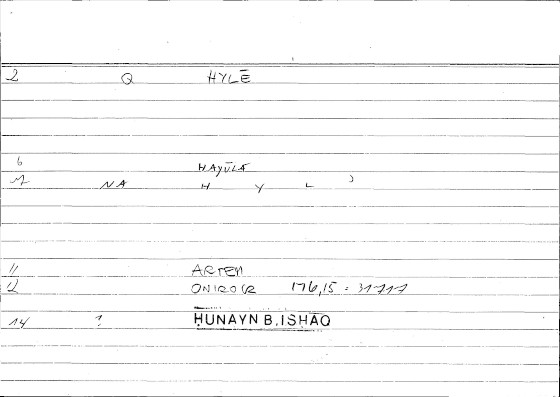 2 Q HYLĒ
6 HAYŪLĀ
NA H Y L J
11 ARTEM
12 ONIROCR 176,15 = 317,17
14 ? ḤUNAYN B. ISḤĀQ